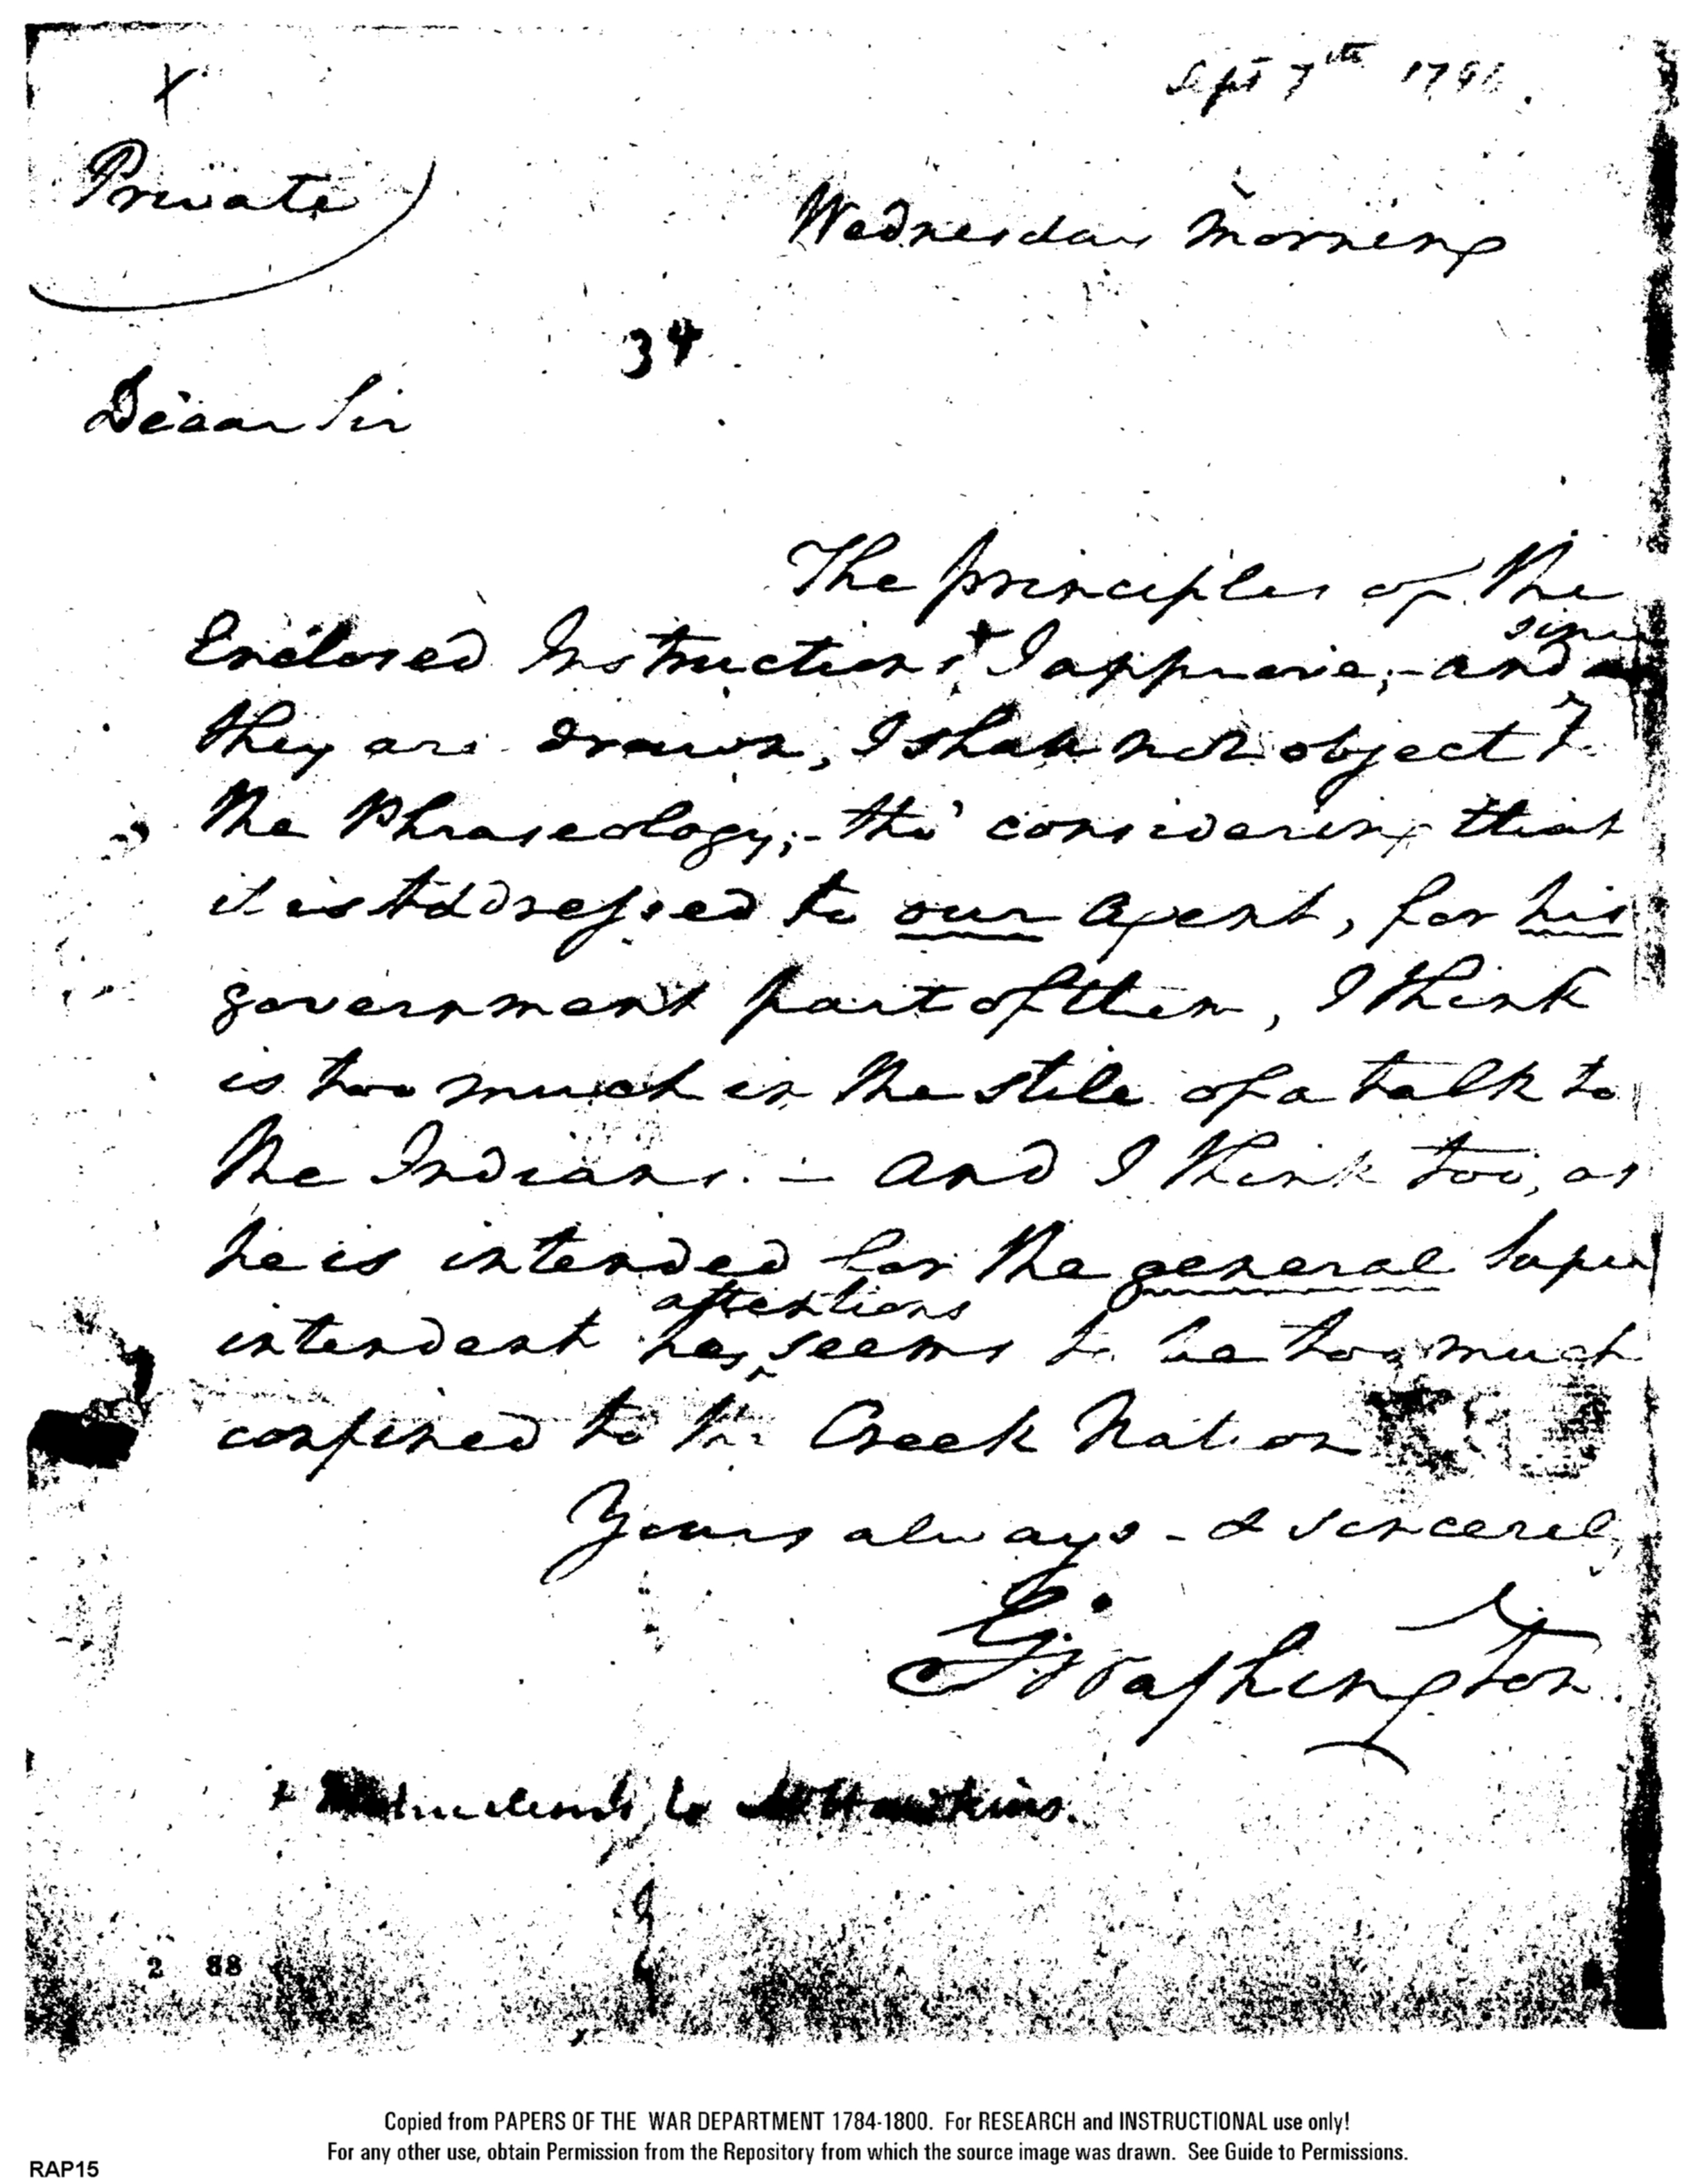 X
Sept 7th 1796.
Private
Wednesday Morning
34
Dear Sir
The principles of the
Enclosed Instructions + I approve; - and since
they are drawn, I shall not object to
the Phraseology; - tho' considering that
it is addressed to our Agent, for his
government part of them, I think
is too much in the stile of a talk to
the Indians. - And I think too, as
he is intended for the general Super
intendent his attentions seems to be too much
confined to the Creek Nation
Yours always - & sincerely
G: Washington
+ to Hawkins.
2 88
Copied from PAPERS OF THE WAR DEPARTMENT 1784-1800. For RESEARCH and INSTRUCTIONAL use only!
For any other use, obtain Permission from the Repository from which the source image was drawn. See Guide to Permissions.
RAP15